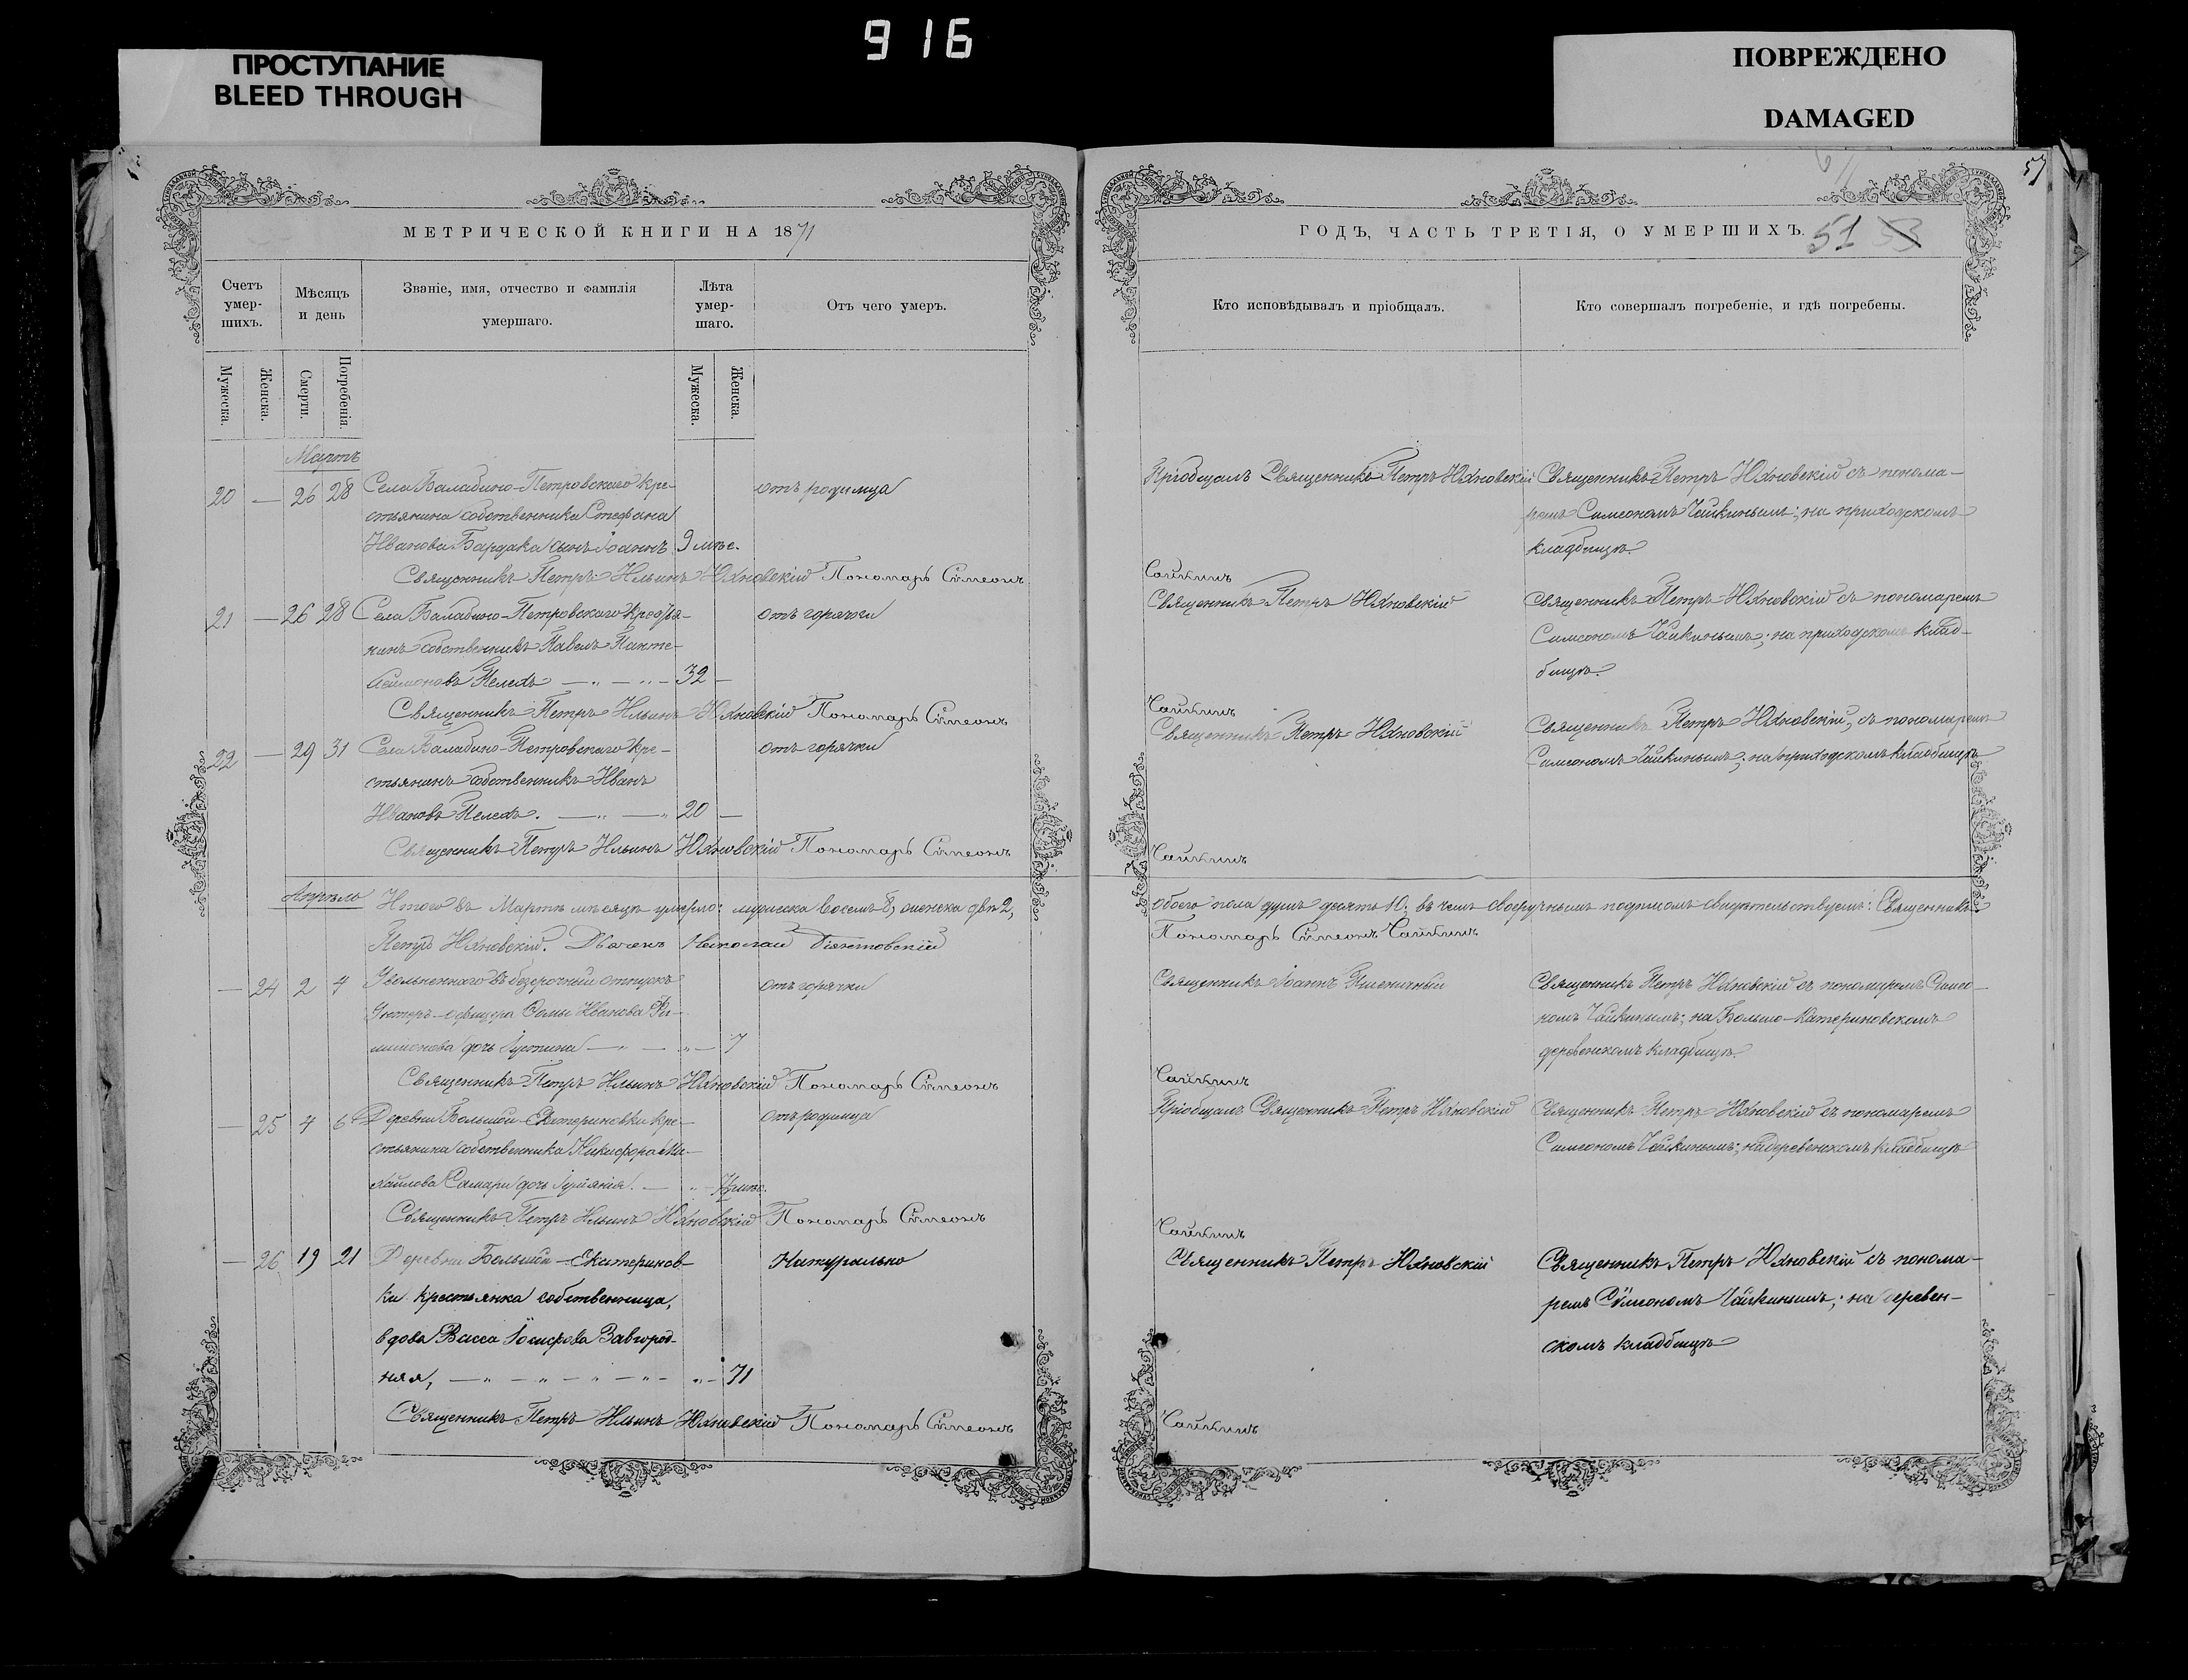 916
ПРОСТУПАНИЕ
BLEED THROUGH
ПОВРЕЖДЕНО
DAMAGED
57
МЕТРИЧЕСКОЙ КНИГИ НА 1871
Счетъ умер-шихъ.
Мѣсяцъ и день
Званіе, имя, отчество и фамилія умершаго.
Лѣта умер-шаго.
Отъ чего умеръ.
Мужеска.
Женска.
Смерти.
Погребенія.
Мужеска.
Женска.
Мартъ
20 — 26 28 Села Балабино-Петровскаго кре- отъ родимца
стьянина собственника Стефана
Иванова Бардака сынъ Іоаннъ 9 мѣс.
Священникъ Петръ Ильинъ Юхновскій Пономарь Симеонъ
21 — 26 28 Села Балабино-Петровскаго крестья- отъ горячки
нинъ собственникъ Павелъ Панте-
леимоновъ Пелехъ — 32 —
Священникъ Петръ Ильинъ Юхновскій Пономарь Симеонъ
22 — 29 31 Села Балабино-Петровскаго кре- отъ горячки
стьянинъ собственникъ Иванъ
Ивановъ Пелехъ. — 20 —
Священникъ Петръ Ильинъ Юхновскій Пономарь Симеонъ
Апрѣль
Итого въ Мартѣ мѣсяцѣ умерло: мужеска восемь 8, женска двѣ 2,
Петръ Юхновскій. Дьяконъ Николай
— 24 2 4 Уволеннаго въ безсрочный отпускъ отъ горячки
Унтеръ-офицера Фомы Иванова Фи-
лимонова дочь Іустина — 7
Священникъ Петръ Ильинъ Юхновскій Пономарь Симеонъ
— 25 4 6 Деревни Большой-Екатериновки кре- отъ родимца
стьянина собственника Никифора Ми-
хайлова Самари дочь — мѣс.
Священникъ Петръ Ильинъ Юхновскій Пономарь Симеонъ
— 26 19 21 Деревни Большой-Екатеринов- Натурально
ки крестьянка собственница,
вдова Васса Іосифова Завгород-
няя, — 71
Священникъ Петръ Ильинъ Юхновскій Пономарь Симеонъ
ГОДЪ, ЧАСТЬ ТРЕТІЯ, О УМЕРШИХЪ. 51 53
Кто исповѣдывалъ и пріобщалъ.
Кто совершалъ погребеніе, и гдѣ погребены.
Пріобщалъ Священникъ Петръ Юхновскій
Священникъ Петръ Юхновскій съ понома-
ремъ Симеономъ Чайкинымъ; на приходскомъ
кладбищѣ.
Чайкинъ
Священникъ Петръ Юхновскій
Священникъ Петръ Юхновскій съ пономаремъ
Симеономъ Чайкинымъ; на приходскомъ клад-
бищѣ.
Чайкинъ
Священникъ Петръ Юхновскій
Священникъ Петръ Юхновскій, съ пономаремъ
Симеономъ Чайкинымъ; на приходскомъ кладбищѣ
Чайкинъ
обоего пола душъ десять 10; въ чемъ своеручнымъ подписомъ свидѣтельствуемъ: Священникъ
Пономарь Симеонъ Чайкинъ
Священникъ Іоаннъ Пшеничный
Священникъ Петръ Юхновскій съ пономаремъ Симео-
номъ Чайкинымъ; на Больше-Катериновскомъ
деревенскомъ кладбищѣ.
Чайкинъ
Пріобщалъ Священникъ Петръ Юхновскій
Священникъ Петръ Юхновскій съ пономаремъ
Симеономъ Чайкинымъ; на деревенскомъ кладбищѣ
Чайкинъ
Священникъ Петръ Юхновскій
Священникъ Петръ Юхновскій съ понома-
ремъ Симеономъ Чайкинымъ; на деревен-
скомъ кладбищѣ
Чайкинъ